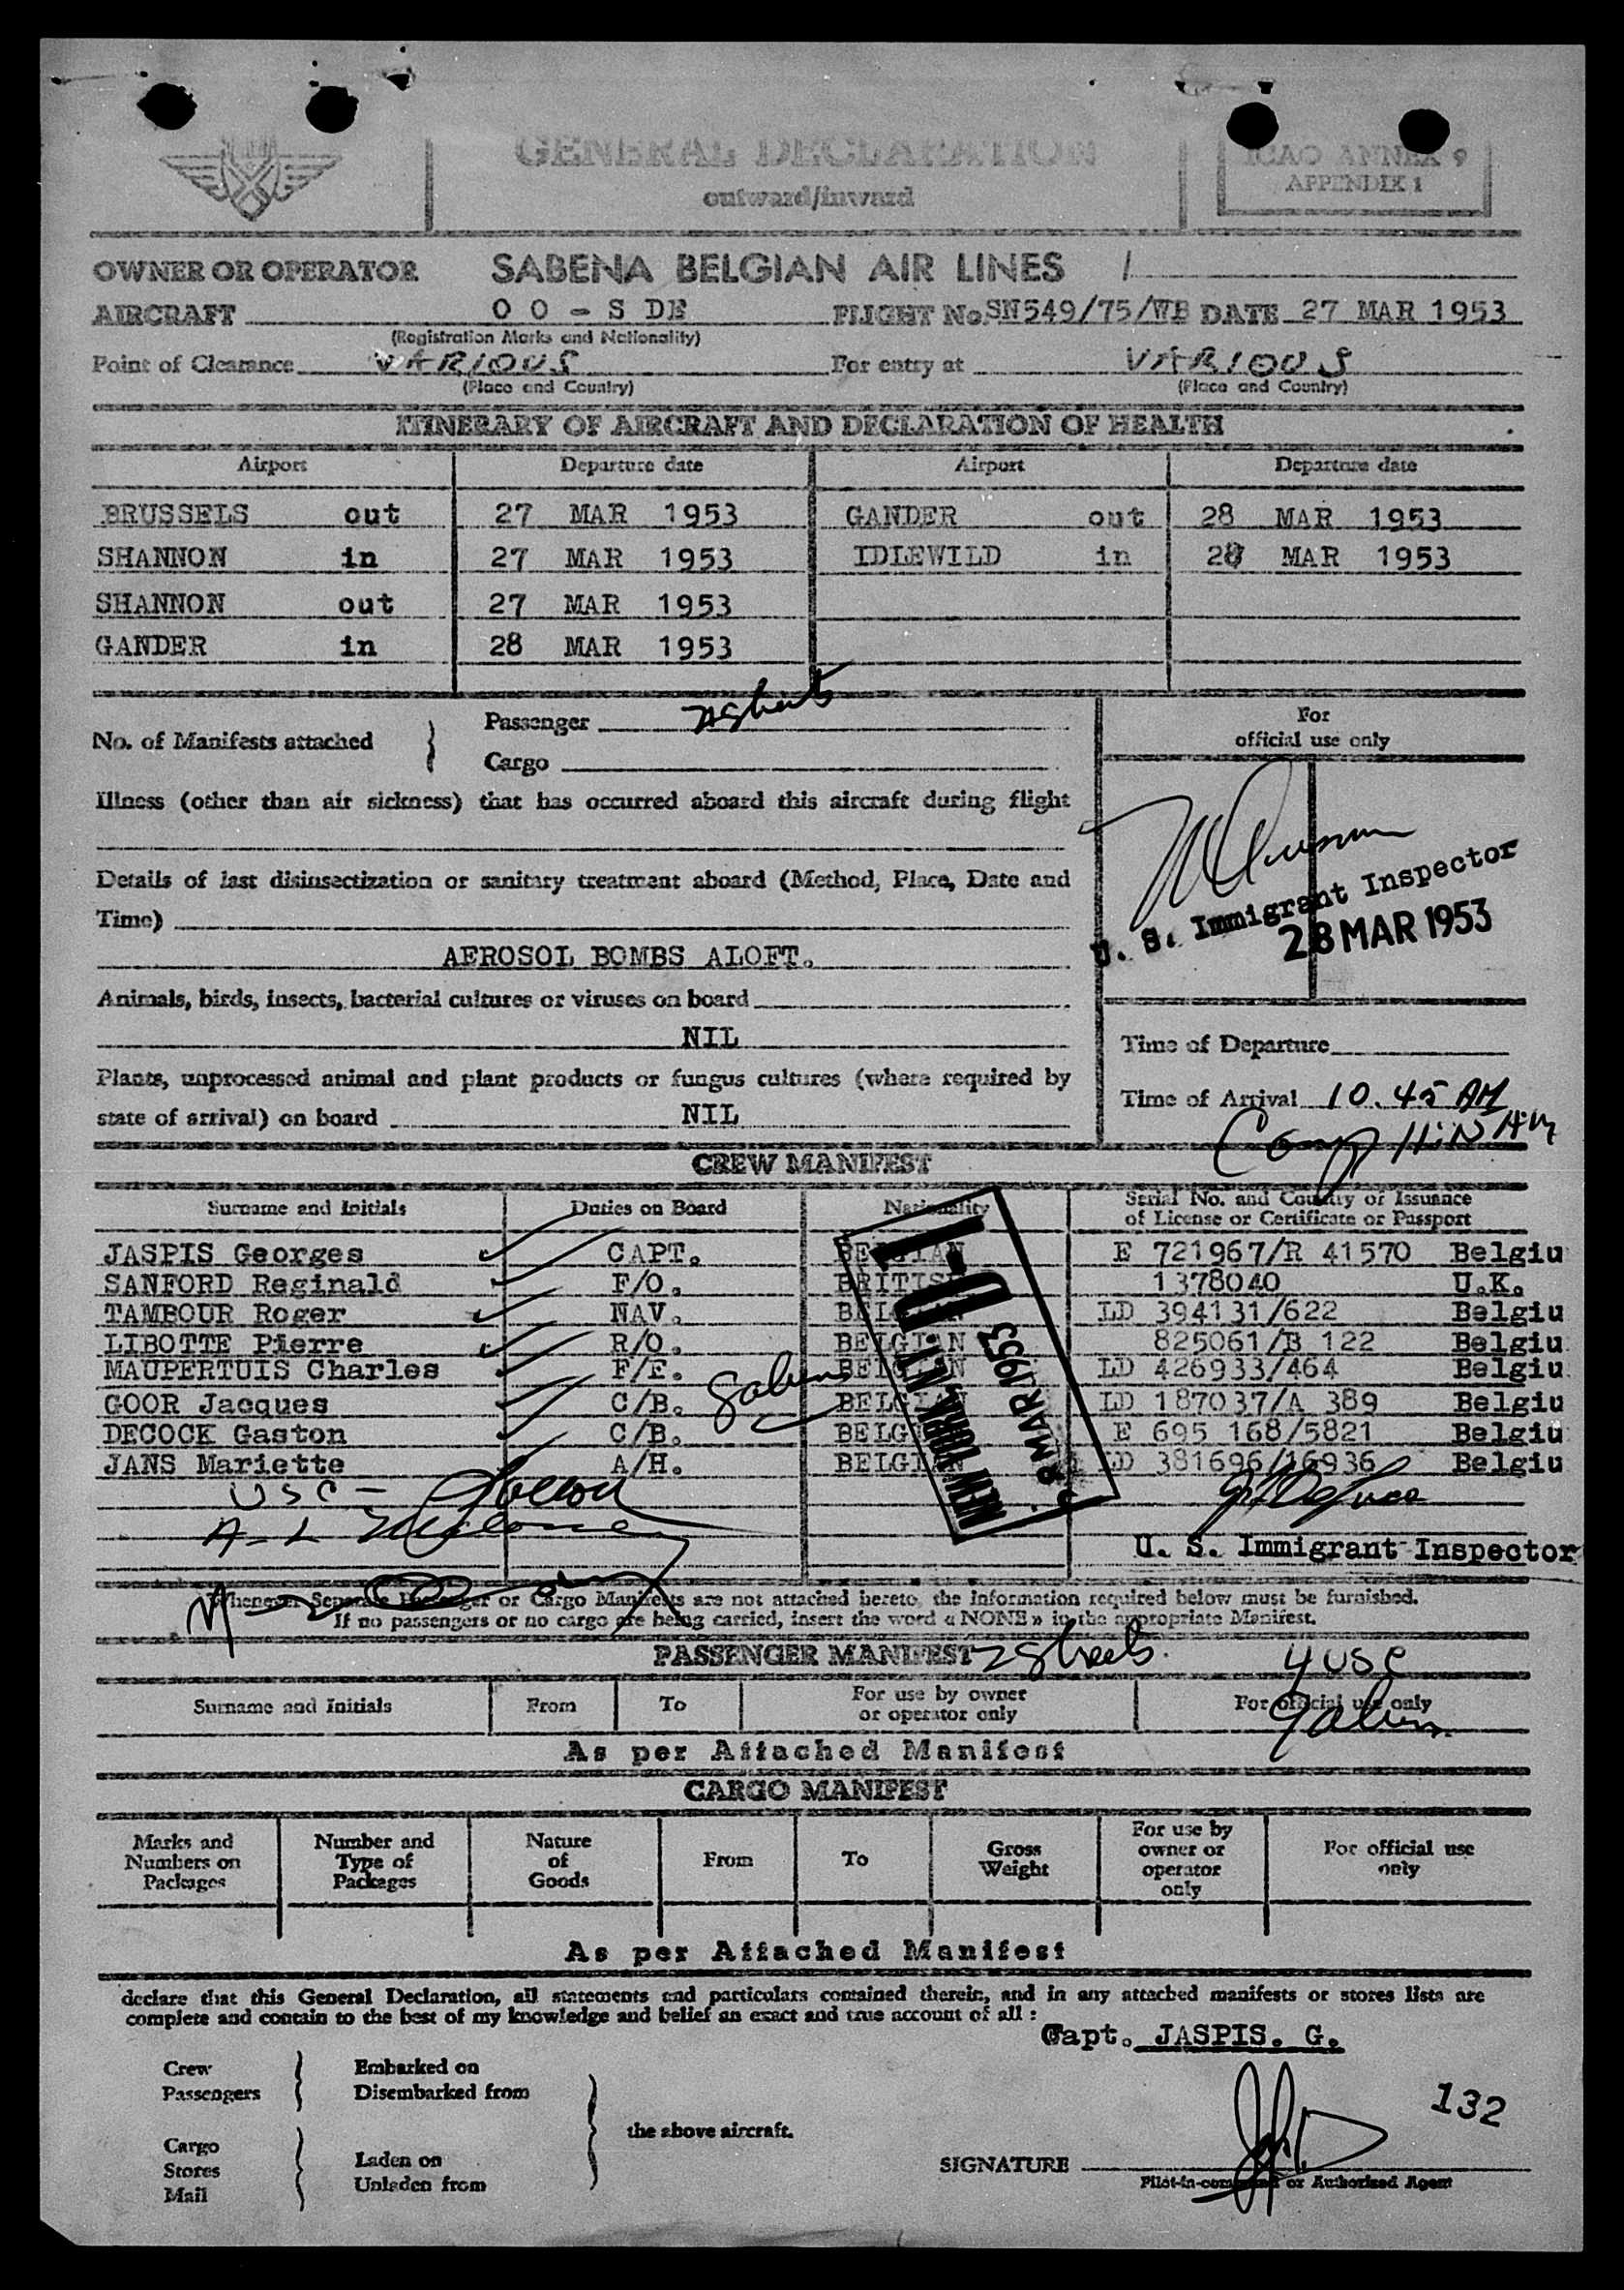 GENERAL DECLARATION
outward/inward
ICAO ANNEX 9
APPENDIX 1
OWNER OR OPERATOR SABENA BELGIAN AIR LINES /
AIRCRAFT O O - S DE FLIGHT No. SN549/75/WB DATE 27 MAR 1953
(Registration Marks and Nationality)
Point of Clearance VARIOUS For entry at VARIOUS
(Place and Country) (Place and Country)
ITINERARY OF AIRCRAFT AND DECLARATION OF HEALTH
Airport Departure date Airport Departure date
BRUSSELS out 27 MAR 1953 GANDER out 28 MAR 1953
SHANNON in 27 MAR 1953 IDLEWILD in 28 MAR 1953
SHANNON out 27 MAR 1953
GANDER in 28 MAR 1953
No. of Manifests attached } Passenger 2 sheets
Cargo
For
official use only
Illness (other than air sickness) that has occurred aboard this aircraft during flight
Details of last disinsectization or sanitary treatment aboard (Method, Place, Date and
Time)
AEROSOL BOMBS ALOFT.
U. S. Immigrant Inspector
28 MAR 1953
Animals, birds, insects, bacterial cultures or viruses on board
NIL
Plants, unprocessed animal and plant products or fungus cultures (where required by
state of arrival) on board NIL
Time of Departure
Time of Arrival 10.45 AM
Comp
CREW MANIFEST
Surname and Initials Duties on Board Nationality Serial No. and Country of Issuance
of License or Certificate or Passport
JASPIS Georges CAPT. BELGIAN E 721967/R 41570 Belgiu
SANFORD Reginald F/O. BRITISH 1378040 U.K.
TAMBOUR Roger NAV. BELGIAN LD 394131/622 Belgiu
LIBOTTE Pierre R/O. BELGIAN 825061/B 122 Belgiu
MAUPERTUIS Charles F/E. BELGIAN LD 426933/464 Belgiu
GOOR Jacques C/B. BELGIAN LD 187037/A 389 Belgiu
DECOCK Gaston C/B. BELGIAN E 695 168/5821 Belgiu
JANS Mariette A/H. BELGIAN LD 381696/16936 Belgiu
I-D
NEW YORK, N.Y.
28 MAR 1953
USC -
A-L
U. S. Immigrant Inspector
Whenever Separate Passenger or Cargo Manifests are not attached hereto, the information required below must be furnished.
If no passengers or no cargo are being carried, insert the word « NONE » in the appropriate Manifest.
PASSENGER MANIFEST 2 sheets. 4 USC
Surname and Initials From To For use by owner
or operator only For official use only
As per Attached Manifest
CARGO MANIFEST
Marks and
Numbers on
Packages
Number and
Type of
Packages
Nature
of
Goods
From
To
Gross
Weight
For use by
owner or
operator
only
For official use
only
As per Attached Manifest
declare that this General Declaration, all statements and particulars contained therein, and in any attached manifests or stores lists are
complete and contain to the best of my knowledge and belief an exact and true account of all :
Capt. JASPIS. G.
Crew
Passengers
Embarked on
Disembarked from
the above aircraft.
Cargo
Stores
Mail
Laden on
Unladen from
132
SIGNATURE
Pilot-in-command or Authorized Agent